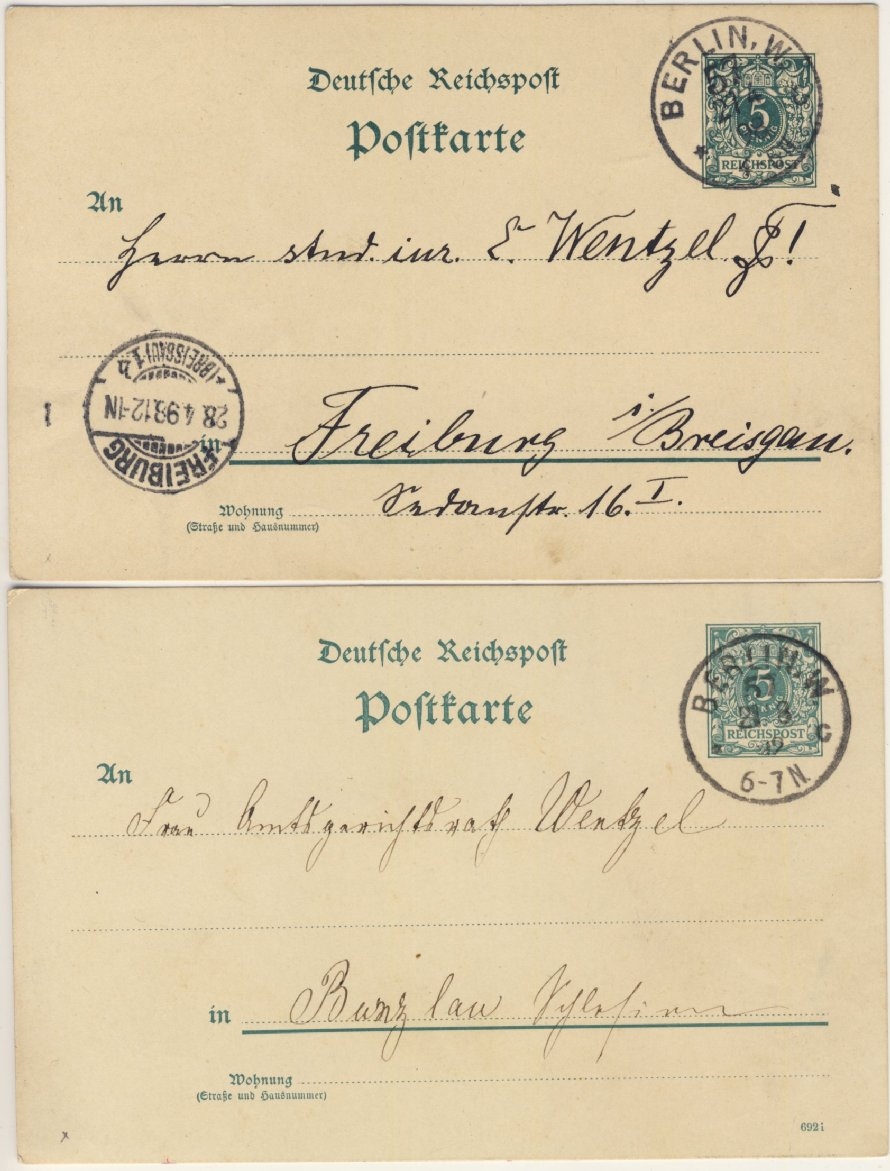 Deutsche Reichspost
Postkarte
BERLIN, W
57
5
REICHSPOST
An
Herrn stud. iur. E. Wentzel
FREIBURG
(BREISGAU) 1
28.4.98.12-1N
in Freiburg i/Breisgau.
Wohnung Sedanstr. 16. I.
(Straße und Hausnummer)
Deutsche Reichspost
Postkarte
BERLIN, W
57
21 3
92
6-7N.
5
REICHSPOST
An
Frau Amtsgerichtsrath Wentzel
in Bunzlau Schlesien
Wohnung
(Straße und Hausnummer)
692i